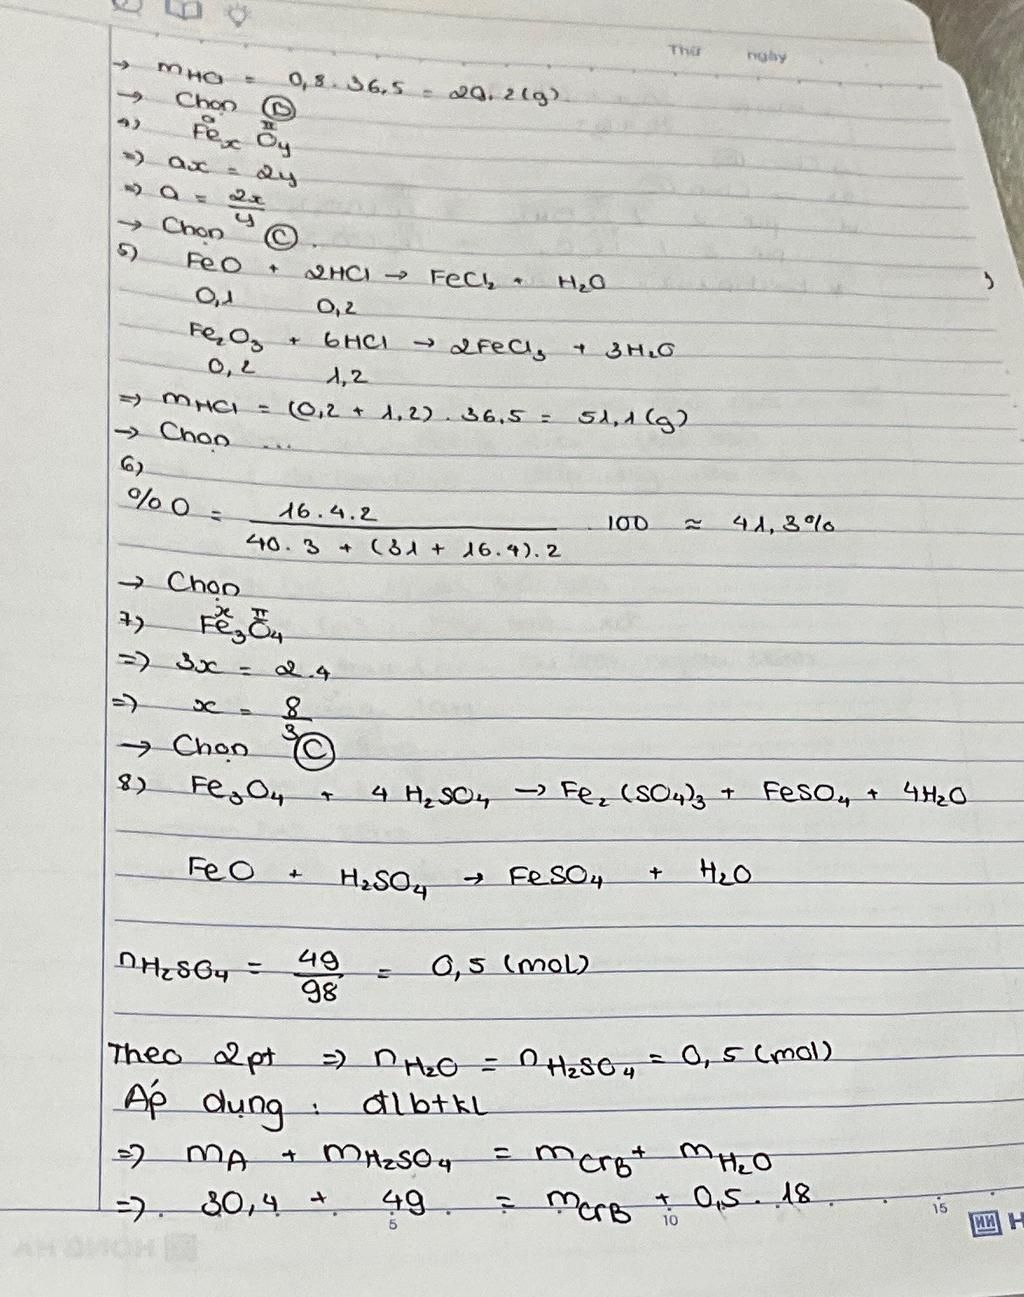 Thứ ngày
→ mHCl = 0,8 . 36,5 = 29,2 (g)
→ Chọn Ⓑ
4) Feₓ Oᵧ
a II
⇒ ax = 2y
⇒ a = 2x/y
→ Chọn Ⓒ.
5) FeO + 2HCl → FeCl₂ + H₂O
0,1 0,2
Fe₂O₃ + 6HCl → 2FeCl₃ + 3H₂O
0,2 1,2
⇒ mHCl = (0,2 + 1,2) . 36,5 = 51,1 (g)
→ Chọn ...
6)
%O = 16.4.2 / 40.3 + (31 + 16.4).2 . 100 ≈ 41,3%
→ Chọn
7) Fe₃O₄
x II
⇒ 3x = 2.4
⇒ x = 8/3
→ Chọn Ⓒ
8) Fe₃O₄ + 4 H₂SO₄ → Fe₂(SO₄)₃ + FeSO₄ + 4H₂O
FeO + H₂SO₄ → FeSO₄ + H₂O
nH₂SO₄ = 49/98 = 0,5 (mol)
Theo 2pt ⇒ nH₂O = nH₂SO₄ = 0,5 (mol)
Áp dụng : đlbtkl
⇒ mA + mH₂SO₄ = mCrB + mH₂O
⇒ 30,4 + 49 = mCrB + 0,5 . 18
5 10 15